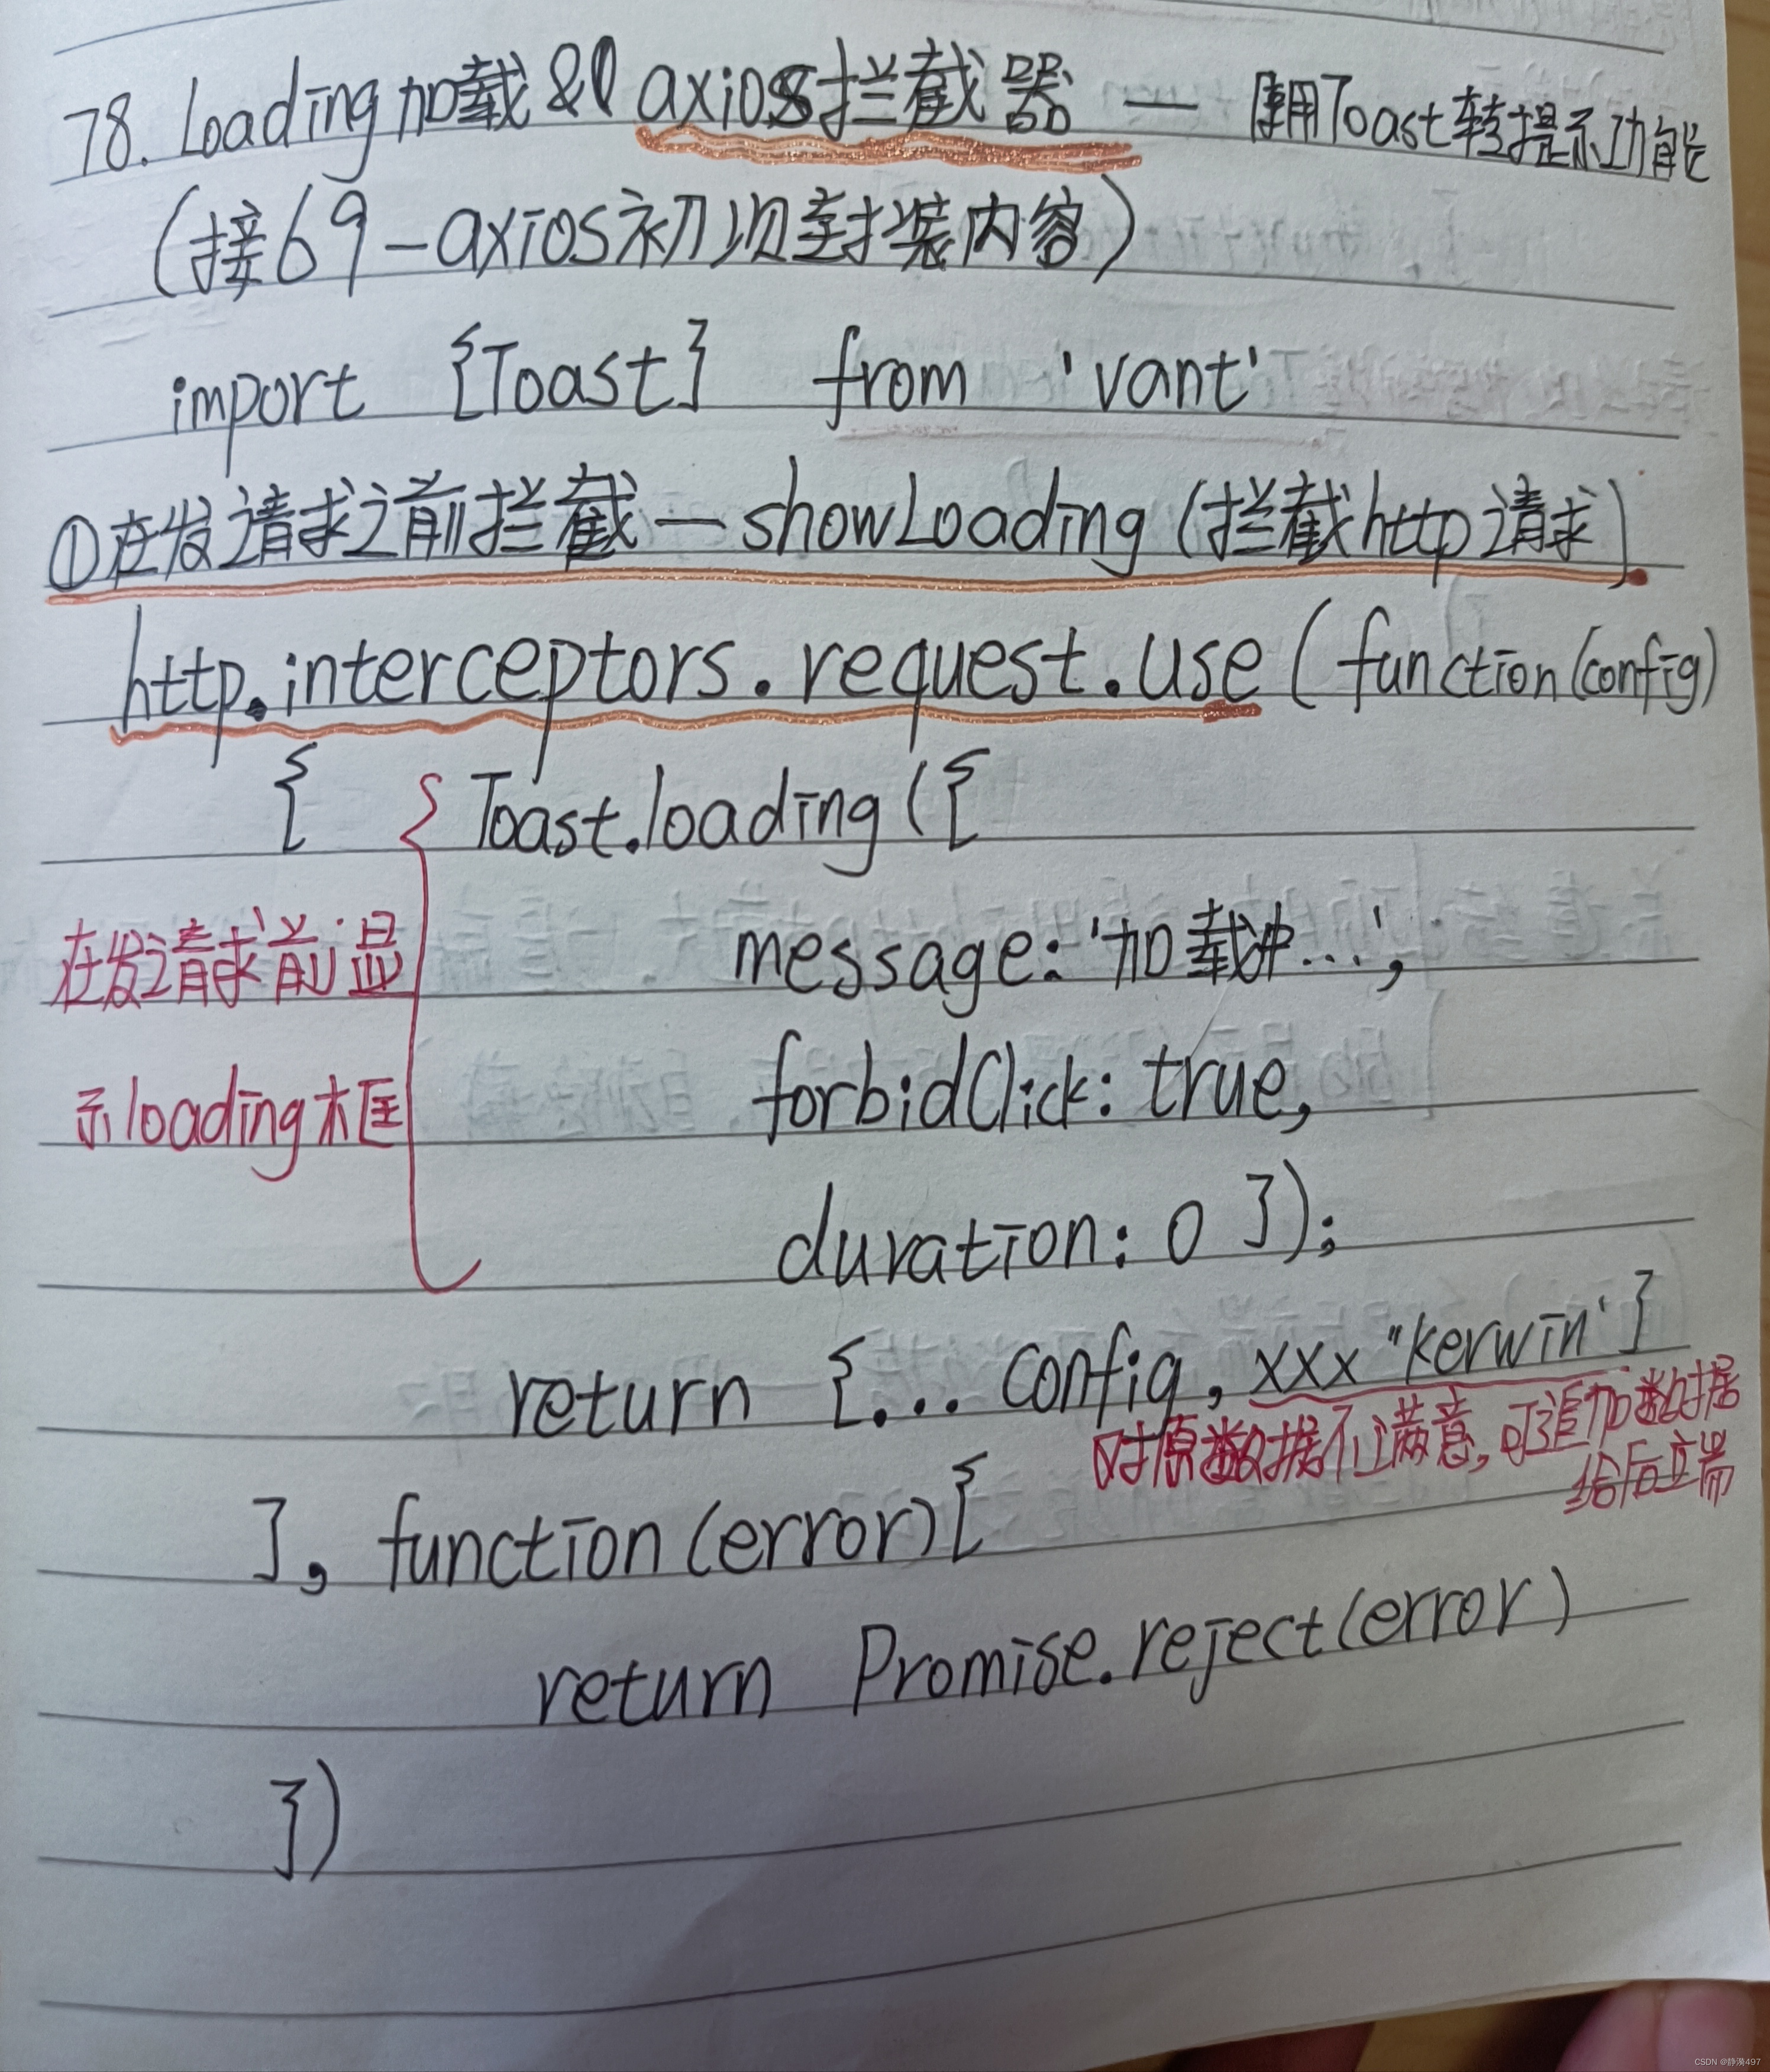 78. Loading加载 && axios拦截器 — 使用Toast轻提示功能
(接69-axios初项封装内容)
import {Toast} from 'vant'
①在发请求之前拦截—showLoading(拦截http请求)
http.interceptors.request.use(function(config)
{ Toast.loading({
在发请求前显
message:'加载中...',
示loading框
forbidClick: true,
duration: 0 });
return {...config, xxx "kerwin'}
对原数据不满意,可追加数据
给后端
}, function(error){
return Promise.reject(error)
})
CSDN @静漪497